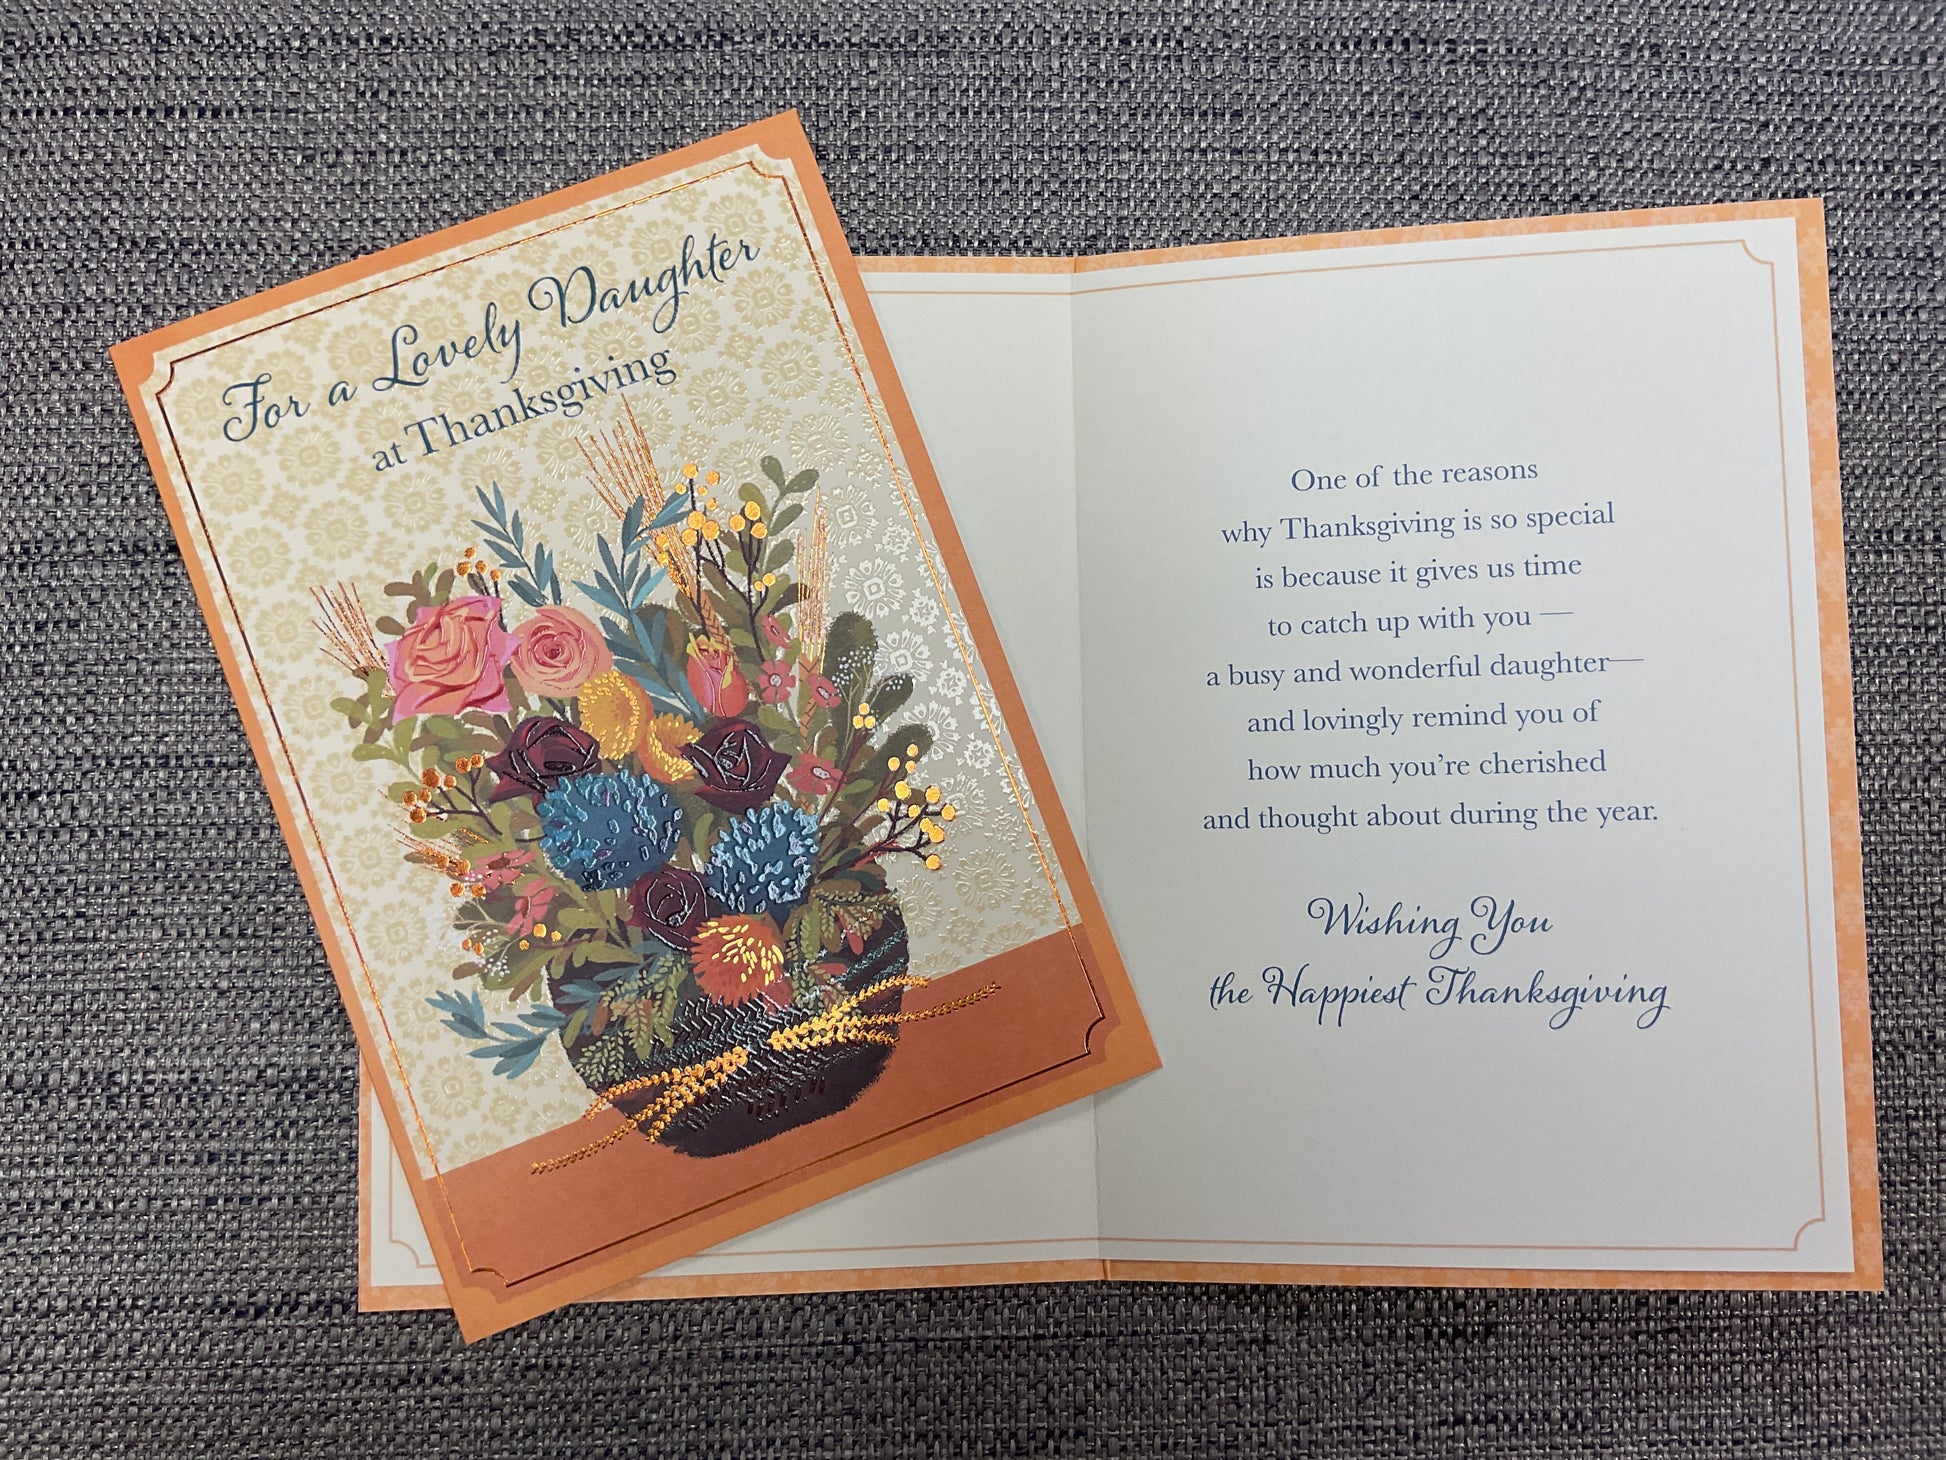 For a Lovely Daughter
at Thanksgiving
One of the reasons
why Thanksgiving is so special
is because it gives us time
to catch up with you —
a busy and wonderful daughter—
and lovingly remind you of
how much you're cherished
and thought about during the year.
Wishing You
the Happiest Thanksgiving